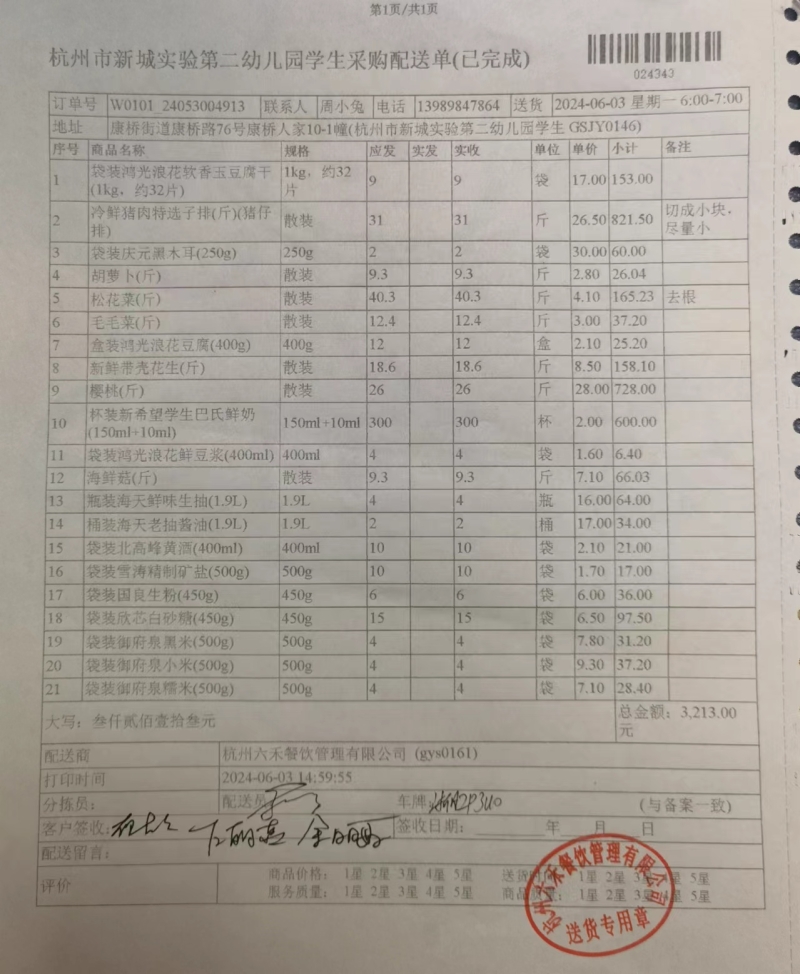 第1页/共1页
杭州市新城实验第二幼儿园学生采购配送单(已完成)
024343
订单号 W0101_24053004913 联系人 周小兔 电话 13989847864 送货 2024-06-03 星期一 6:00-7:00
地址 康桥街道康桥路76号康桥人家10-1幢(杭州市新城实验第二幼儿园学生 GSJY0146)
序号 商品名称 规格 应发 实发 实收 单位 单价 小计 备注
1 袋装鸿光浪花软香玉豆腐干(1kg，约32片) 1kg，约32片 9 9 袋 17.00 153.00
2 冷鲜猪肉特选子排(斤)(猪仔排) 散装 31 31 斤 26.50 821.50 切成小块，尽量小
3 袋装庆元黑木耳(250g) 250g 2 2 袋 30.00 60.00
4 胡萝卜(斤) 散装 9.3 9.3 斤 2.80 26.04
5 松花菜(斤) 散装 40.3 40.3 斤 4.10 165.23 去根
6 毛毛菜(斤) 散装 12.4 12.4 斤 3.00 37.20
7 盒装鸿光浪花豆腐(400g) 400g 12 12 盒 2.10 25.20
8 新鲜带壳花生(斤) 散装 18.6 18.6 斤 8.50 158.10
9 樱桃(斤) 散装 26 26 斤 28.00 728.00
10 杯装新希望学生巴氏鲜奶(150ml+10ml) 150ml+10ml 300 300 杯 2.00 600.00
11 袋装鸿光浪花鲜豆浆(400ml) 400ml 4 4 袋 1.60 6.40
12 海鲜菇(斤) 散装 9.3 9.3 斤 7.10 66.03
13 瓶装海天鲜味生抽(1.9L) 1.9L 4 4 瓶 16.00 64.00
14 桶装海天老抽酱油(1.9L) 1.9L 2 2 桶 17.00 34.00
15 袋装北高峰黄酒(400ml) 400ml 10 10 袋 2.10 21.00
16 袋装雪涛精制矿盐(500g) 500g 10 10 袋 1.70 17.00
17 袋装国良生粉(450g) 450g 6 6 袋 6.00 36.00
18 袋装欣芯白砂糖(450g) 450g 15 15 袋 6.50 97.50
19 袋装御府泉黑米(500g) 500g 4 4 袋 7.80 31.20
20 袋装御府泉小米(500g) 500g 4 4 袋 9.30 37.20
21 袋装御府泉糯米(500g) 500g 4 4 袋 7.10 28.40
大写：叁仟贰佰壹拾叁元 总金额：3,213.00元
配送商 杭州六禾餐饮管理有限公司 (gys0161)
打印时间 2024-06-03 14:59:55
分拣员： 配送员 车牌 (与备案一致)
客户签收： 签收日期： 年 月 日
配送留言：
评价 商品价格： 1星 2星 3星 4星 5星 送货时 1星 2星 3星 星 5星
服务质量： 1星 2星 3星 4星 5星 商品质量： 1星 2星 3星 星 5星
杭州六禾餐饮管理有限公司
送货专用章